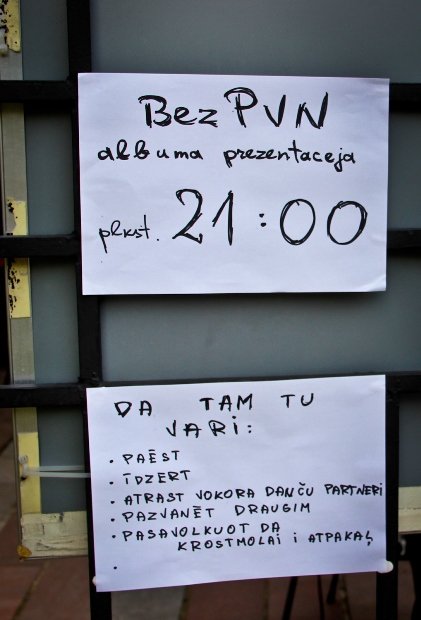 Bez PVN
albuma prezentaceja
plkst. 21:00
DA TAM TU
VARI:
· PAĒST
· ĪDZERT
· ATRAST VOKORA DANČU PARTNERI
· PAZVANĒT DRAUGIM
· PASAVOLKUOT DA
KROSTMOLAI I ATPAKAĻ
·